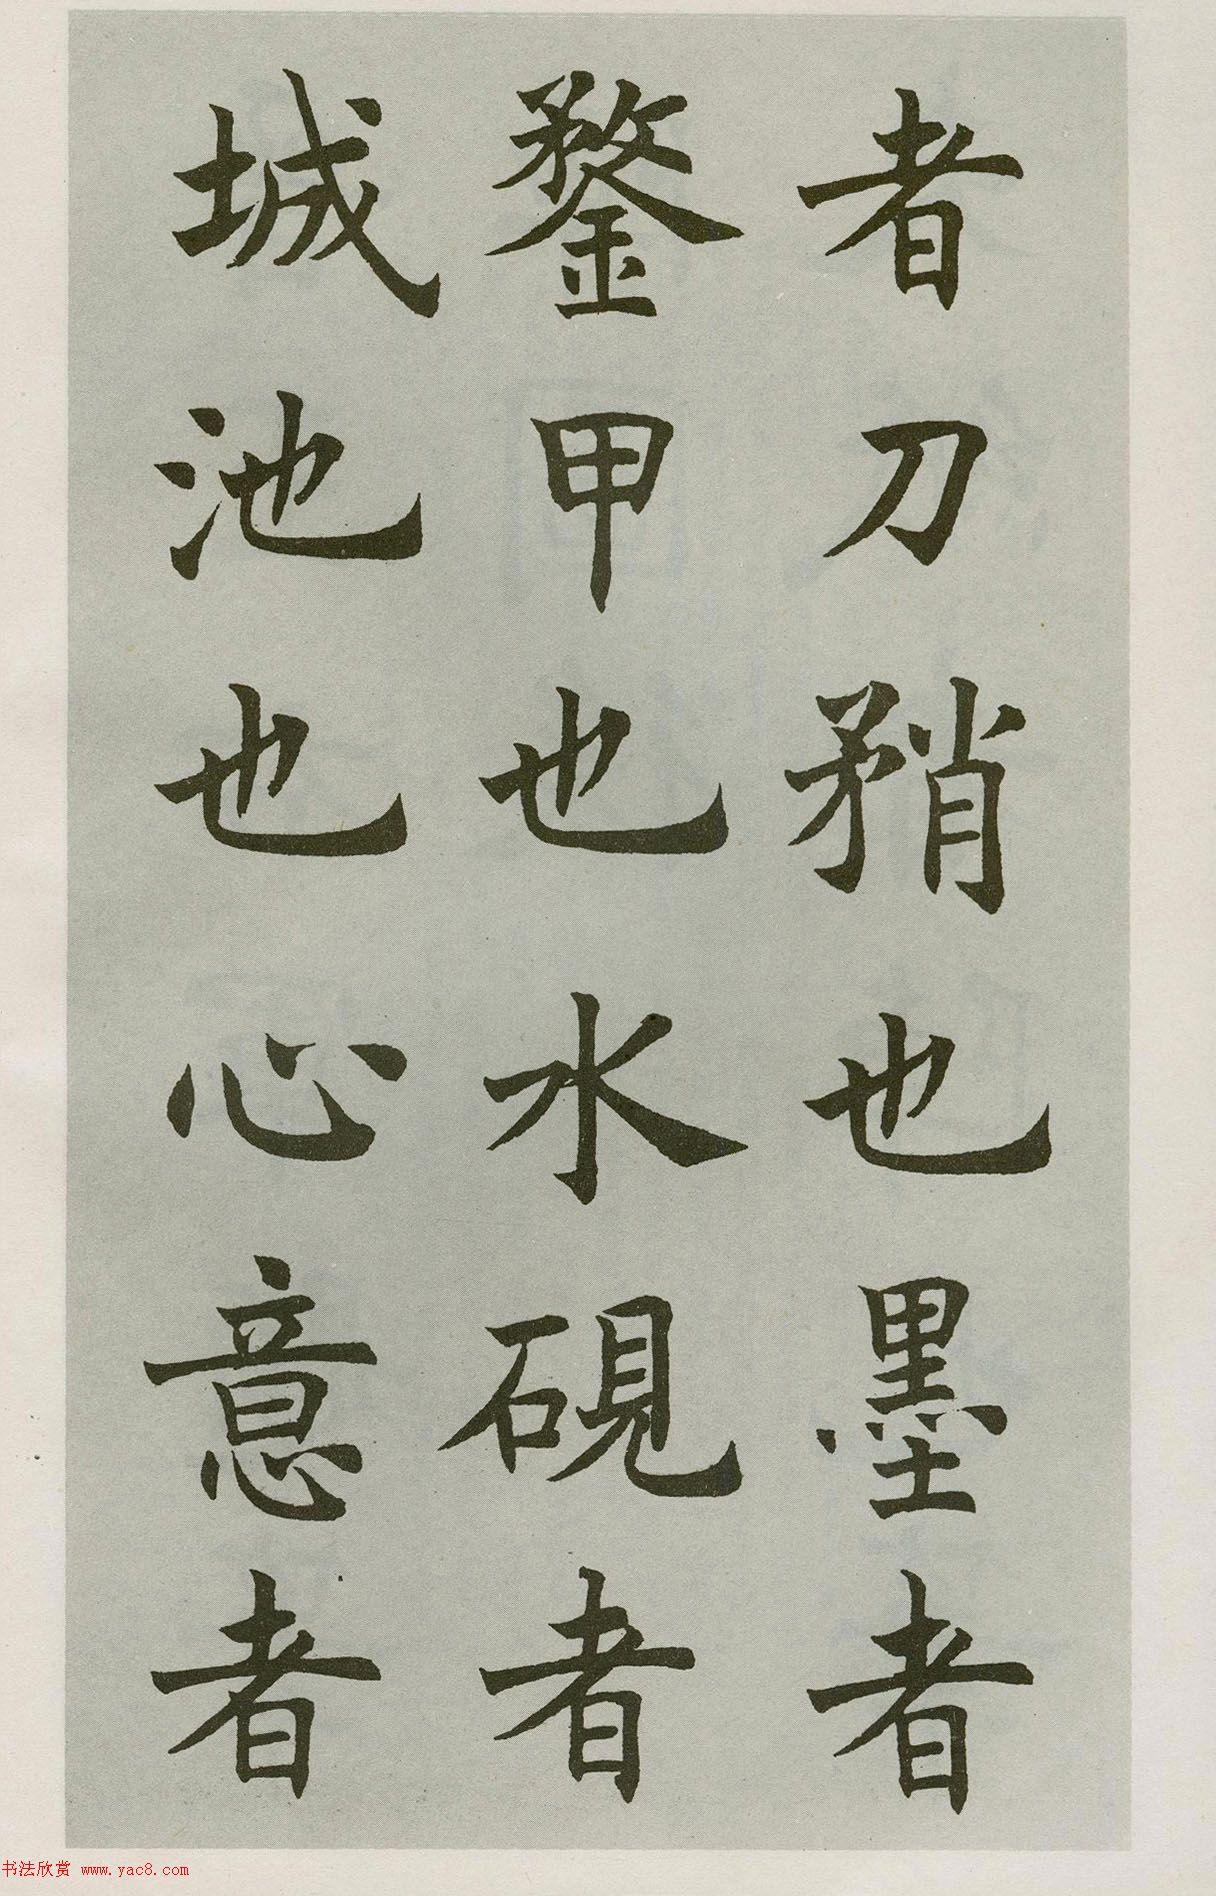 者刀矟也墨者
鍪甲也水硯者
城池也心意者
书法欣赏 www.yac8.com